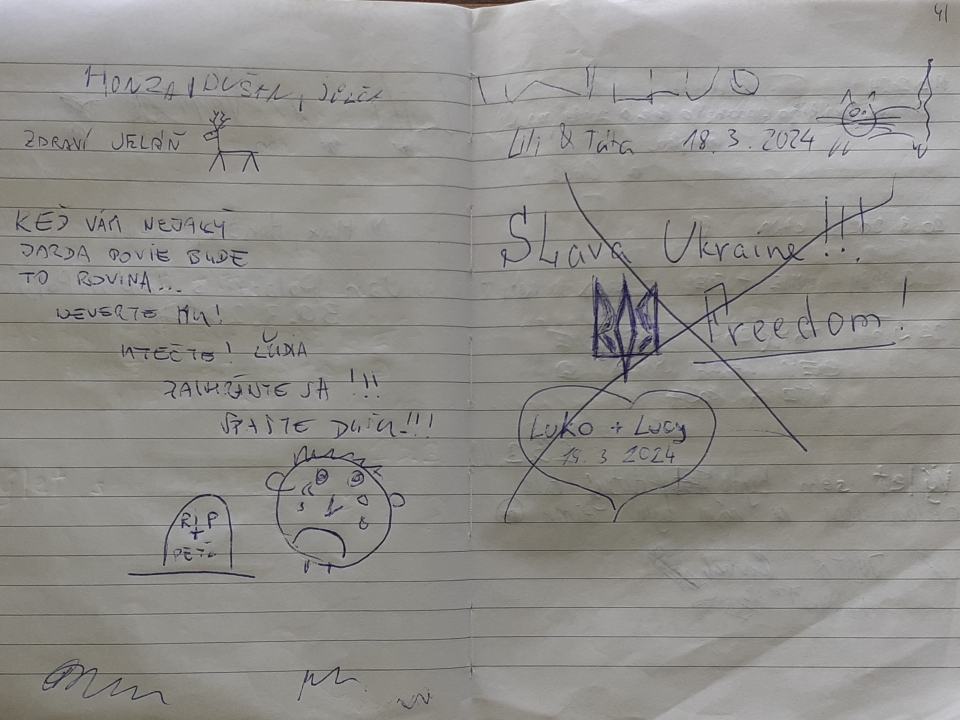 HONZA, DUŠAN,
ZDRAVÍ JELÁŇ
KEĎ VÁM NEJAKÝ
JARDA POVIE BUDE
TO ROVINA...
NEVERTE MU!
UTEČTE! ĽUDIA
ZACHRÁŇTE SA!!!
SPASTE DUŠU!!!
RIP
PEŤO
41
Lili & Táta 18. 3. 2024
SLava Ukraine!!!
Freedom!
Luko + Lucy
18. 3 2024